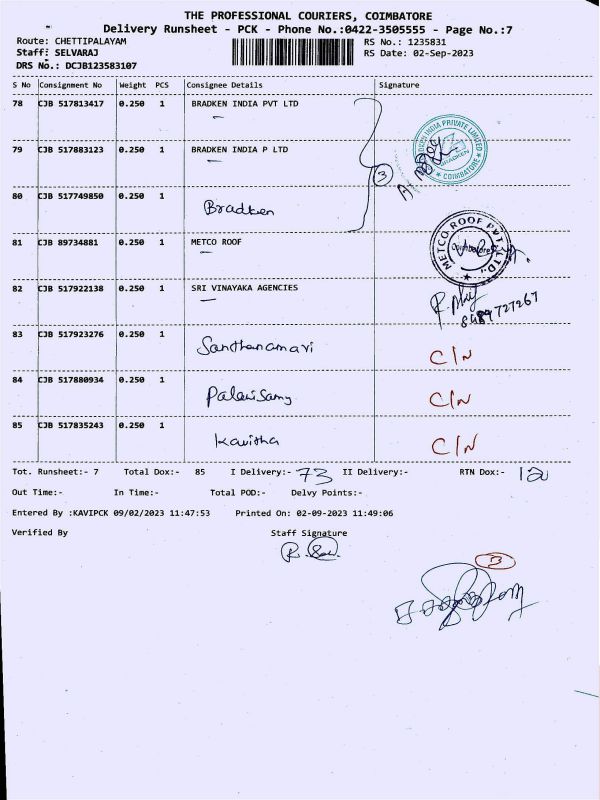 THE PROFESSIONAL COURIERS, COIMBATORE
Delivery Runsheet - PCK - Phone No.:0422-3505555 - Page No.:7
Route: CHETTIPALAYAM RS No.: 1235831
Staff: SELVARAJ RS Date: 02-Sep-2023
DRS No.: DCJB123583107
S No Consignment No Weight PCS Consignee Details Signature
78 CJB 517813417 0.250 1 BRADKEN INDIA PVT LTD
BRADKEN INDIA PRIVATE LIMITED
BRADKEN
★ COIMBATORE ★
79 CJB 517883123 0.250 1 BRADKEN INDIA P LTD
3
80 CJB 517749850 0.250 1 Bradken
81 CJB 89734881 0.250 1 METCO ROOF
METCO ROOF PVT. LTD.,
Coimbatore
★
82 CJB 517922138 0.250 1 SRI VINAYAKA AGENCIES
8489727267
83 CJB 517923276 0.250 1 Santhanamari C/N
84 CJB 517880934 0.250 1 Palanisamy C/N
85 CJB 517835243 0.250 1 Kavitha C/N
Tot. Runsheet:- 7 Total Dox:- 85 I Delivery:- 73 II Delivery:- RTN Dox:- 12
Out Time:- In Time:- Total POD:- Delvy Points:-
Entered By :KAVIPCK 09/02/2023 11:47:53 Printed On: 02-09-2023 11:49:06
Verified By Staff Signature
3